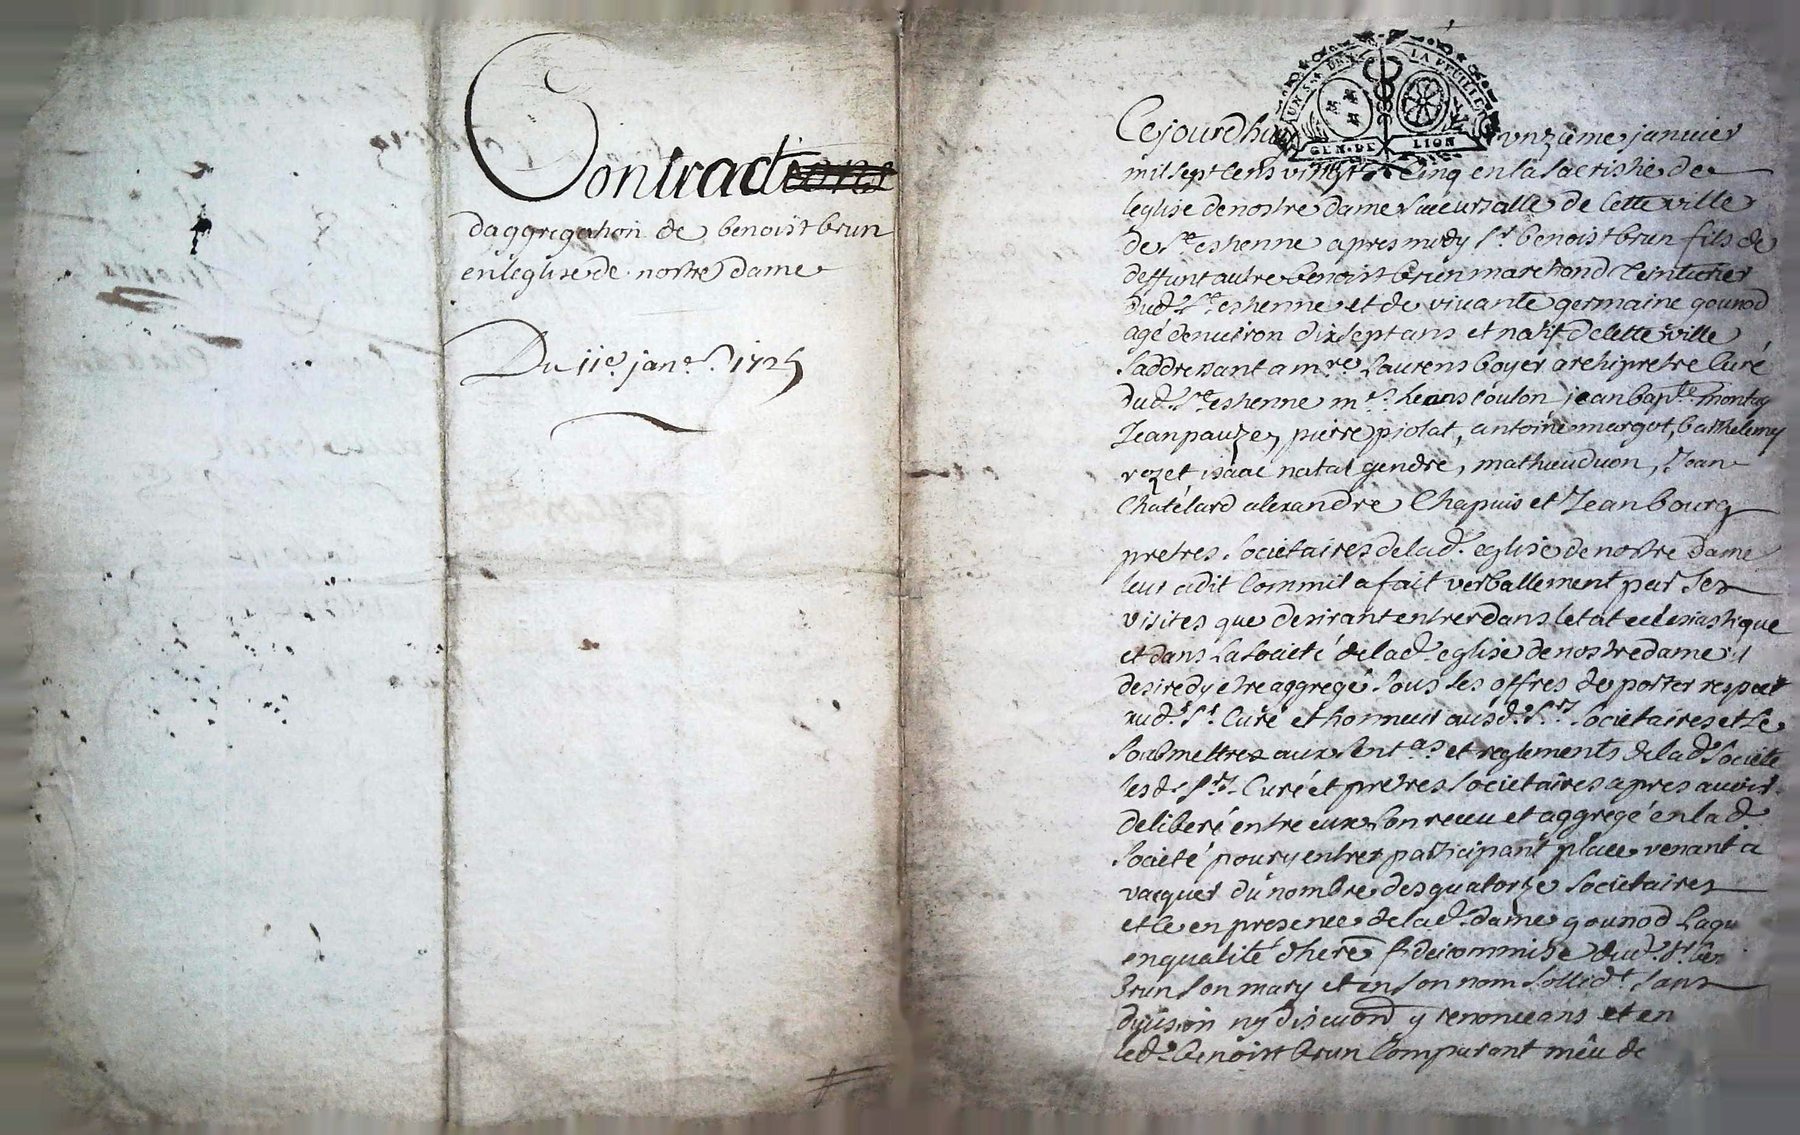 Contract
daggregation de benoist brun
en leglise de nostre dame
Du 11e janer. 1725
UN S. 4 DEN. LA FEUILLE
GEN. DE LION
Cejourdhuy unzieme janvier
mil sept cens vingt cinq en la sacristie de
leglise de nostre dame succursalle de cette ville
de St. estienne apres midy Sr. benoist brun fils de
deffunt autre benoist brun marchand teinturier
dud. St. estienne et de vivante germaine gounod
agé denviron dixsept ans et natif de cette ville
saddressant a mre. Laurens boyer archipretre Curé
dud. St. estienne mrs. Coulon jean bapte. montag
Jean pauze, pierre piolat, antoine margot, barthelemy
rozet isaac natal gendre, mathieu duon, Jean
Chatelard alexandre Chapuis et Jean bourg
pretres societaires de lad. eglise de nostre dame
leur a dit comm'il a fait verballement par ses
visites que desirant entrer dans letat eclesiastique
et dans la societé de lad. eglise de nostre dame il
desire dy etre aggregé sous les offres de porter respect
aud. Sr. Curé et honneur ausd. Srs. societaires et se
soubmettre aux et reglements de lad. societé
lesd. Srs. Curé et pretres societaires apres avoir
deliberé entre eux lont receu et aggregé en lad.
societé pour y entrer participant place venant a
vacquer du nombre des quatorze societaires
et ce en presence de lad. dame gounod laqu
en qualité dhere. fideicommise dud. Sr. be
Brun son mary et en son nom sollidt. sans
division ny discuon. y renonceans et en
led. benoist brun comparant meu de